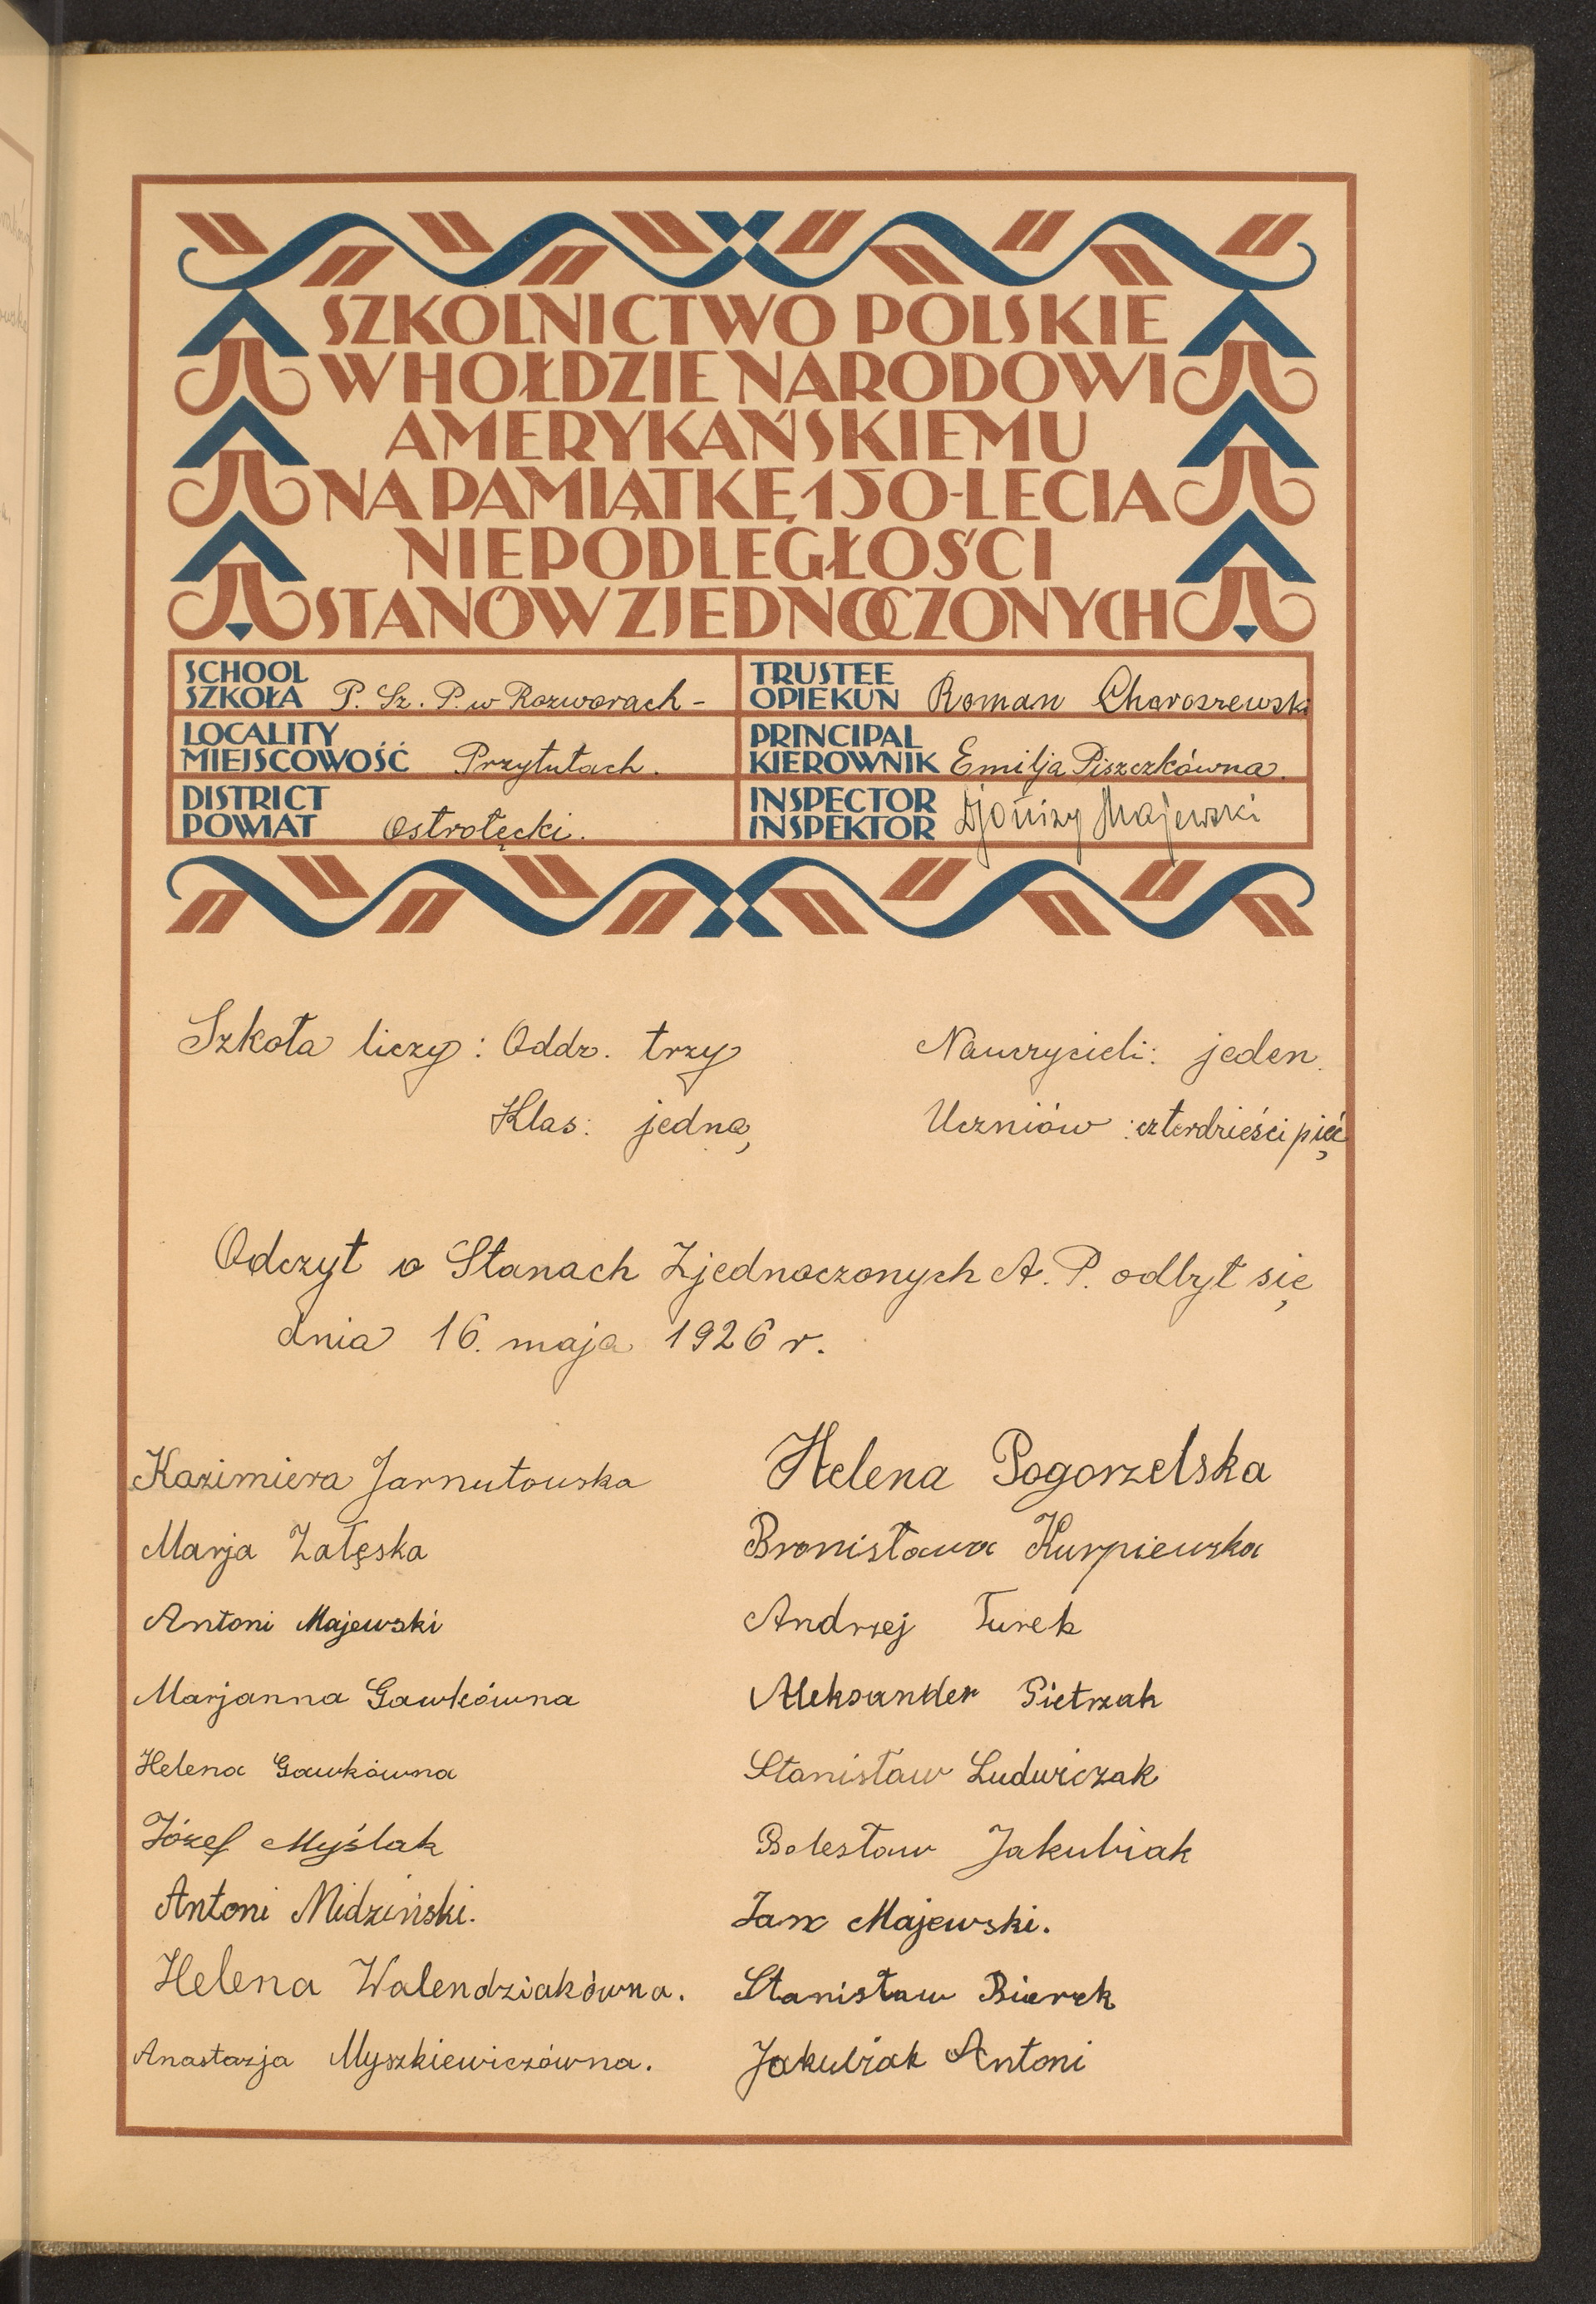 SZKOLNICTWO POLSKIE
W HOŁDZIE NARODOWI
AMERYKAŃSKIEMU
NA PAMIĄTKĘ 150-LECIA
NIEPODLEGŁOŚCI
STANÓW ZJEDNOCZONYCH
SCHOOL
SZKOŁA P. Sz. P. w Rozworach -
LOCALITY
MIEJSCOWOŚĆ Przytułach.
DISTRICT
POWIAT Ostrołęcki.
TRUSTEE
OPIEKUN Roman Choroszewski
PRINCIPAL
KIEROWNIK Emilja Piszczkówna.
INSPECTOR
INSPEKTOR Majewski
Szkoła liczy: Oddz. trzy
Klas: jedną
Nauczycieli: jeden.
Uczniów: czterdzieści pięć
Odczyt o Stanach Zjednoczonych A. P. odbył się
dnia 16. maja 1926 r.
Kazimiera Jarnutowska
Marja Załęska
Antoni Majewski
Marjanna Gawkówna
Helena Gawkówna
Józef Myślak
Antoni Midziński.
Helena Walendziakówna.
Anastazja Myszkiewiczówna.
Helena Pogorzelska
Bronisława Kurpiewska
Andrzej Turek
Aleksander Pietrzak
Stanisław Ludwiczak
Bolesław Jakubiak
Jan Majewski.
Stanisław Bierek
Jakubiak Antoni